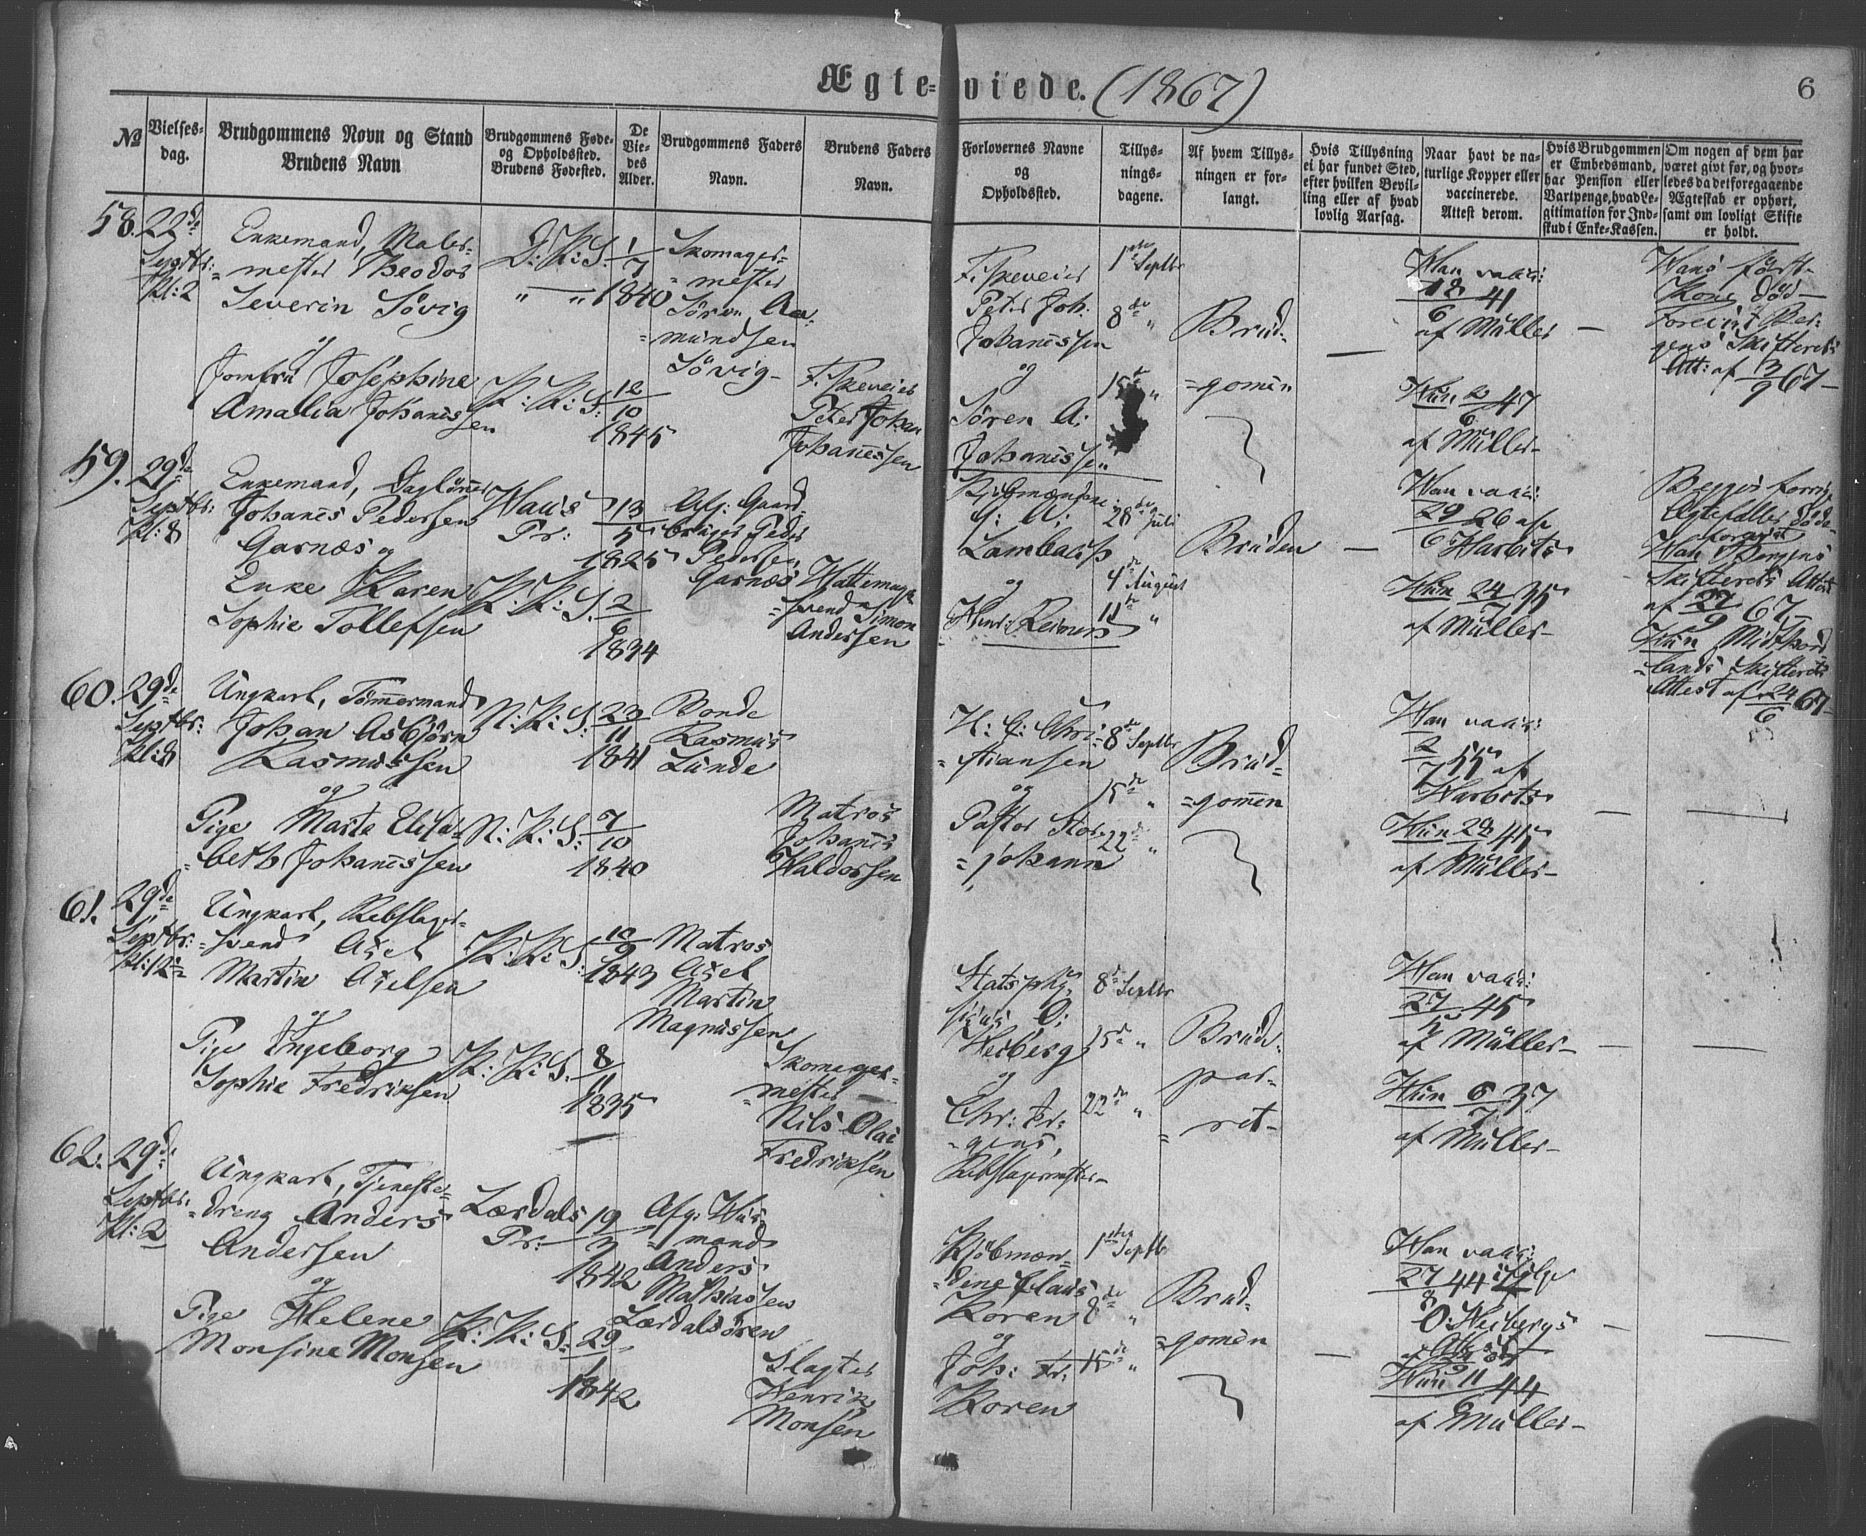 Ægte-viede. (1867)
6
№
Vielses-
dag.
Brudgommens Navn og Stand
Brudens Navn
Brudgommens Føde-
og Opholdssted.
Brudens Fødested.
De
Vie-
des
Alder.
Brudgommens Faders
Navn.
Brudens Faders
Navn.
Forlovernes Navne
og
Opholdssted.
Tillys-
nings-
dagene.
Af hvem Tillys-
ningen er for-
langt.
Hvis Tillysning
ei har fundet Sted,
efter hvilken Bevil-
ling eller af hvad
lovlig Aarsag.
Naar havt de na-
turlige Kopper eller
vaccinerede.
Attest derom.
Hvis Brudgommen
er Embedsmand,
har Pension eller
Vartpenge, hvad Le-
gitimation for Ind-
skud i Enke-Kassen.
Om nogen af dem har
været givt før, og hvor-
ledes da det foregaaende
Ægteskab er ophørt,
samt om lovligt Skifte
er holdt.
58.
22de
Septbr:
Kl: 2
Enkemand, Maler-
=mester Theodor
Severin Søvig
og
Jomfru Josephine
Amalia Johanessen
D: K: S.
" — "
K: K: S:
1/7
1840
12/10
1845
Skomager-
=mester
Søren Aa-
=mundsen
Søvig-
F. Skeveier
Peter Johan
Johanessen
F. Skeveier
Peter Joh.
Johanessen
og
Søren A:
Johanessen
1ste Septbr
8de "
15de "
Brud-
=gomen
—
Han vacc:
18/6 41
af Müller
Hun 2/6 47
af Müller-
—
Hans først-
Kone død-
Forevist Ber-
gens Skifterets
Att: af 13/9 67-
59.
29de
Septbr:
Kl: 8
Enkemand, Dagløner
Johanes Pedersen
Garnæs og
Enke Karen
Sophie Tollefsen
Haus
Pr:
K: K: S.
13/5
1825
2/6
1834
Afg: Gaard-
bruger Peder
Pedersen
Garnæs
Hattemager
=svend Simon
Andersen
G: A:
Lambach
og
Henr: Reimers
28de Juli
4de August
11te "
Bruden
—
Han vacc:
29/6 26 af
Harbits
Hun 24/7 35
af Müller-
Begges forrige
Ægtefæller døde-
forevist
Han Bergens
Skifterets Attest
af 27/9 67
Hun Midthord
=lands Skifterets
Attest af 24/6 67-
60.
29de
Septbr:
Kl: 8
Ungkarl, Tømmermand
Johan Asbjørn
Rasmussen
og
Pige Marte Elisa-
=beth Johanessen
N: K: S:
N: K: S:
23/11
1841
7/10
1840
Bonde
Rasmus
Lunde
Matros
Johanes
Haldorsen
H: C: Chri-
=stiansen
og
Pastor Stor-
=johann
8de Septbr
15de "
22de "
Brud-
=gomen
Han vacc:
2/7 55 af
Harbits
Hun 28 45
af Müller-
— —
61.
29de
Septbr:
Kl: 12
Ungkarl, Rebslager-
=svend Axel
Martin Axelsen
og
Pige Ingeborg
Sophie Fredriksen
K: K: S:
K: K: S.
10/9
1843
8/11
1835
Matros
Axel
Martin
Magnussen
Skomager-
=mester
Nils Olai
Fredriksen
Statsphy-
sicus O:
Heiberg
og
Chr: Jør-
=gens,
Rebslagermester-
8de Septbr
15de "
22de "
Brude-
par-
=ret-
Han vacc:
27/7 45
af Müller-
Hun 6/7 37
af Müller-
— —
62.
29de
Septbr:
Kl: 2
Ungkarl, Tjeneste-
=dreng Anders
Andersen
og
Pige Helene
Monsine Monsen
Lærdals
Pr:
K: K: S:
19/3
1842
29/1
1842
Afg: Hus-
=mand
Anders
Mathiassen
Lærdalsøren
Slagter
Henrik
Monsen
Kjøbmæn-
=dene Claus
Koren
og
Joh: Fr.
Koren
1ste Septbr
8de "
15de "
Brud-
=gomen
—
Han vacc:
27/8 44 ifølge
O: Heibergs
Att:
Hun 11/6 44
af Müller-
— —